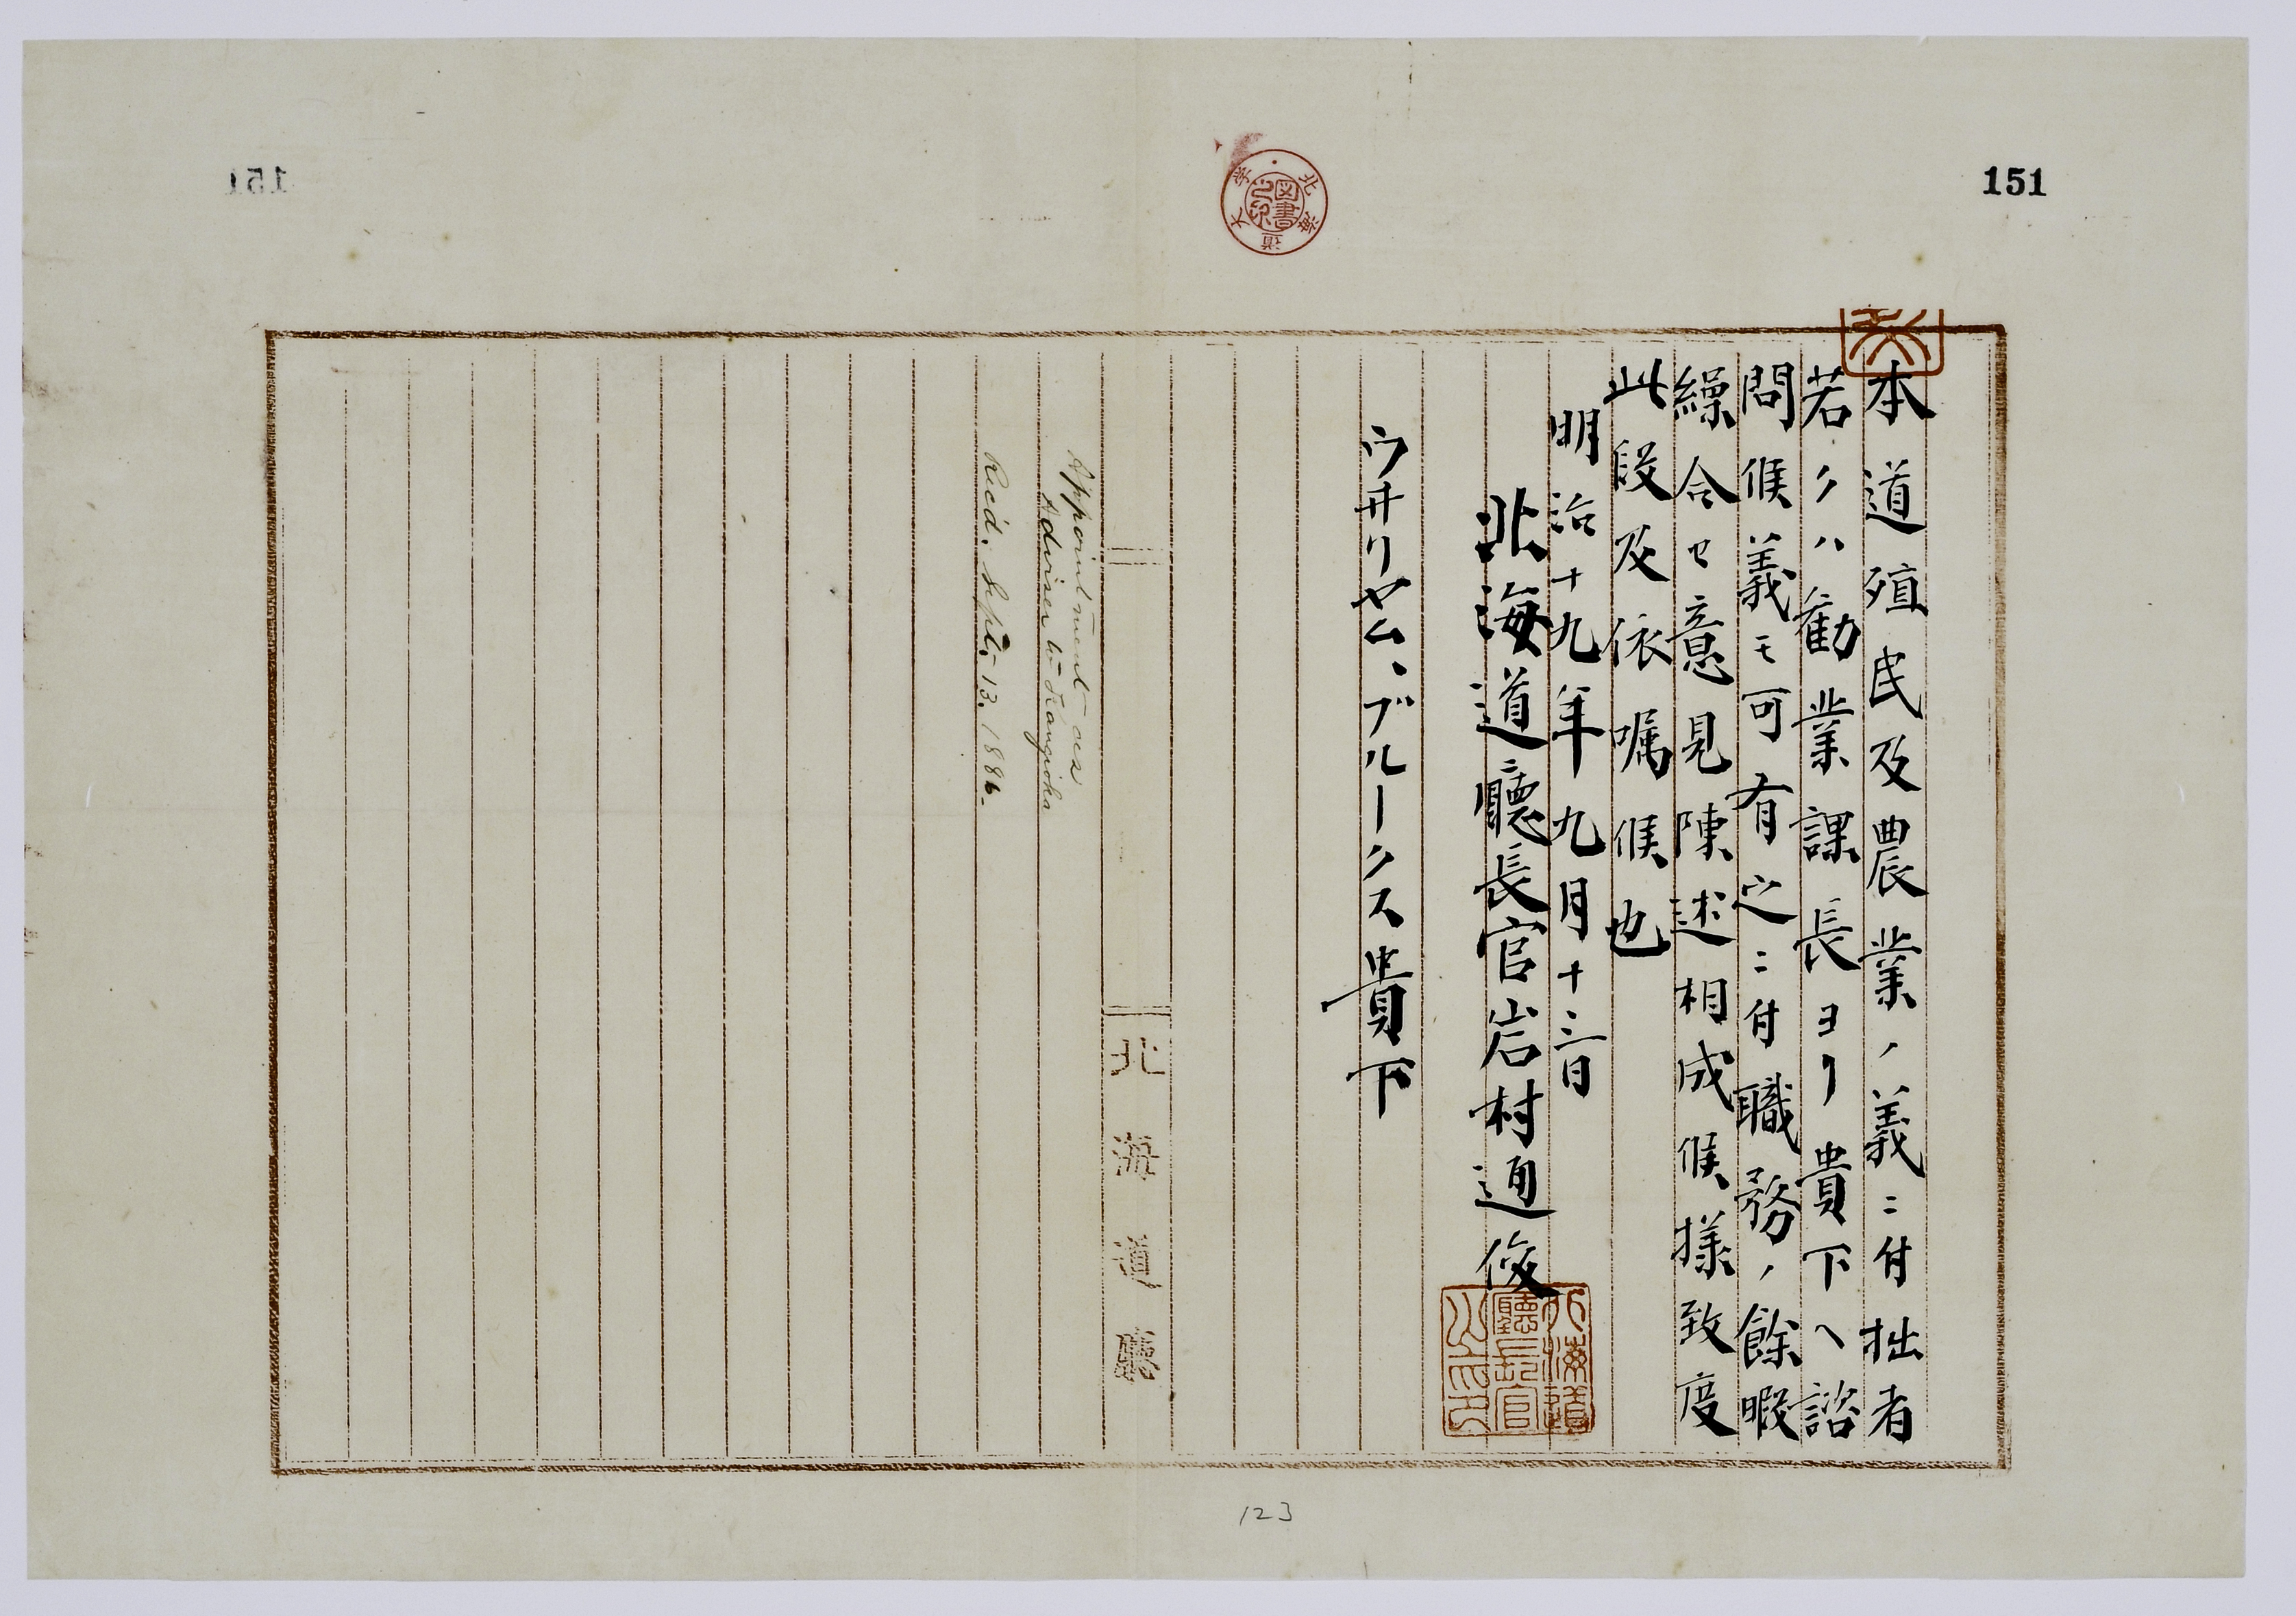 151
本道殖民及農業ノ義ニ付拙者
若クハ勸業課長ヨリ貴下ヘ諮
問候義モ可有之ニ付職務ノ餘暇
繰合セ意見陳述相成候様致度
此段及依嘱候也
明治十九年九月十三日
北海道廳長官岩村通俊
北海道廳長官之印
ウヰリヤム、ブルークス貴下
北海道廳
Appointment as
Adviser to Kangioka
Rec'd. Sept. 13. 1886.
北海道大学
図書之印
123
151